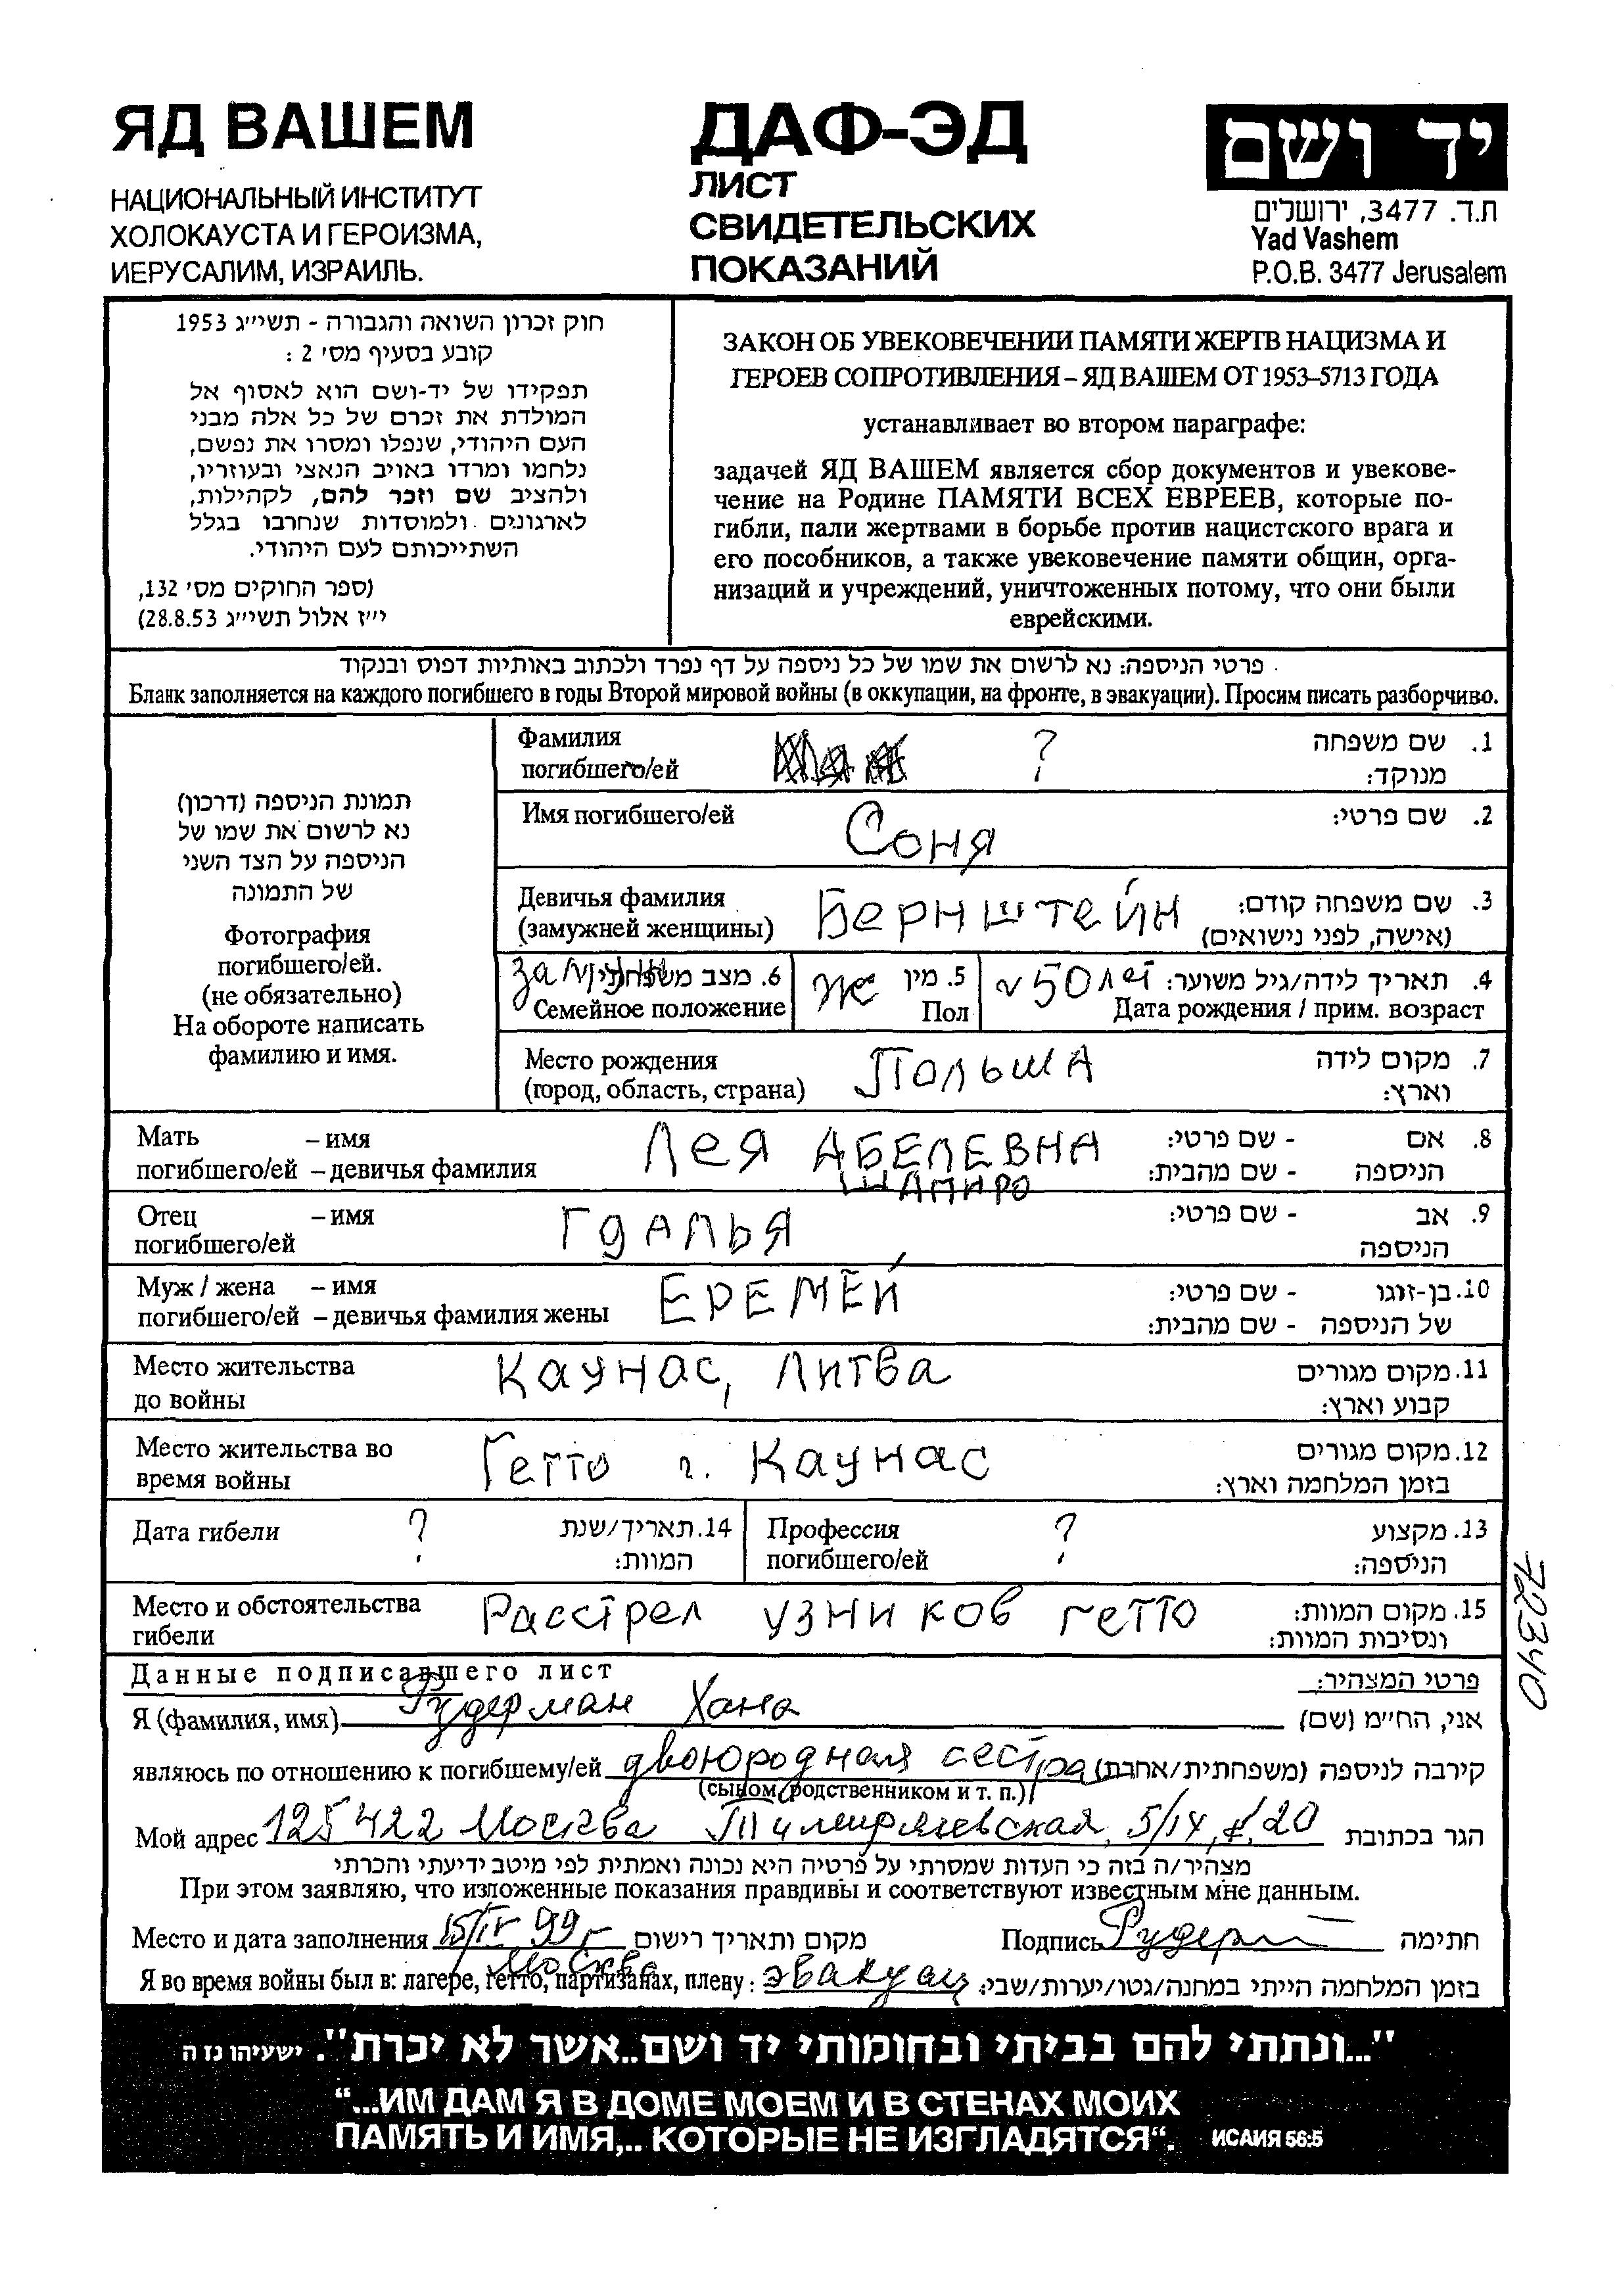 ЯД ВАШЕМ
НАЦИОНАЛЬНЫЙ ИНСТИТУТ
ХОЛОКАУСТА И ГЕРОИЗМА,
ИЕРУСАЛИМ, ИЗРАИЛЬ.
ДАФ-ЭД
ЛИСТ
СВИДЕТЕЛЬСКИХ
ПОКАЗАНИЙ
יד ושם
ת.ד. 3477, ירושלים
Yad Vashem
P.O.B. 3477 Jerusalem
חוק זכרון השואה והגבורה - תשי״ג 1953
קובע בסעיף מס׳ 2 :
תפקידו של יד-ושם הוא לאסוף אל
המולדת את זכרם של כל אלה מבני
העם היהודי, שנפלו ומסרו את נפשם,
נלחמו ומרדו באויב הנאצי ובעוזריו,
ולהציב שם וזכר להם, לקהילות,
לארגונים ולמוסדות שנחרבו בגלל
השתייכותם לעם היהודי.
(ספר החוקים מס׳ 132,
י״ז אלול תשי״ג 28.8.53)
ЗАКОН ОБ УВЕКОВЕЧЕНИИ ПАМЯТИ ЖЕРТВ НАЦИЗМА И
ГЕРОЕВ СОПРОТИВЛЕНИЯ – ЯД ВАШЕМ ОТ 1953–5713 ГОДА
устанавливает во втором параграфе:
задачей ЯД ВАШЕМ является сбор документов и увекове-
чение на Родине ПАМЯТИ ВСЕХ ЕВРЕЕВ, которые по-
гибли, пали жертвами в борьбе против нацистского врага и
его пособников, а также увековечение памяти общин, орга-
низаций и учреждений, уничтоженных потому, что они были
еврейскими.
פרטי הניספה: נא לרשום את שמו של כל ניספה על דף נפרד ולכתוב באותיות דפוס ובנקוד
Бланк заполняется на каждого погибшего в годы Второй мировой войны (в оккупации, на фронте, в эвакуации). Просим писать разборчиво.
תמונת הניספה (דרכון)
נא לרשום את שמו של
הניספה על הצד השני
של התמונה
Фотография
погибшего/ей.
(не обязательно)
На обороте написать
фамилию и имя.
Фамилия ? 1. שם משפחה
погибшего/ей מנוקד:
Имя погибшего/ей Соня 2. שם פרטי:
Девичья фамилия Бернштейн 3. שם משפחה קודם:
(замужней женщины) (אישה, לפני נישואים)
замужн 6. מצב משפחתי Ж 5. מין ~50 лет 4. תאריך לידה/גיל משוער:
Семейное положение Пол Дата рождения / прим. возраст
Место рождения Польша 7. מקום לידה
(город, область, страна) וארץ:
Мать – имя Лея АБЕЛЕВНА 8. אם - שם פרטי:
погибшего/ей – девичья фамилия ШАПИРО הניספה - שם מהבית:
Отец – имя ГДАЛЬЯ 9. אב - שם פרטי:
погибшего/ей הניספה
Муж / жена – имя ЕРЕМЕЙ 10. בן-זוגו - שם פרטי:
погибшего/ей – девичья фамилия жены של הניספה - שם מהבית:
Место жительства Каунас, Литва 11. מקום מגורים
до войны קבוע וארץ:
Место жительства во Гетто г. Каунас 12. מקום מגורים
время войны בזמן המלחמה וארץ:
Дата гибели ? 14. תאריך/שנת Профессия ? 13. מקצוע
המוות: погибшего/ей הניספה:
Место и обстоятельства Расстрел узников гетто 15. מקום המוות:
гибели ונסיבות המוות:
72340
Данные подписавшего лист פרטי המצהיר:
Я (фамилия, имя) Рудерман Хана אני, הח״מ (שם)
являюсь по отношению к погибшему/ей двоюродная сестра קירבה לניספה (משפחתית/אחרת)
(сыном, родственником и т. п.)
Мой адрес 125422 Москва Тимирязевская, 5/14, 20 הגר בכתובת
מצהיר/ה בזה כי העדות שמסרתי על פרטיה היא נכונה ואמתית לפי מיטב ידיעתי והכרתי
При этом заявляю, что изложенные показания правдивы и соответствуют известным мне данным.
Место и дата заполнения 15/IV 99 г מקום ותאריך רישום Подпись Рудерм חתימה
Москва
Я во время войны был в: лагере, гетто, партизанах, плену: эвакуац בזמן המלחמה הייתי במחנה/גטו/יערות/שבי:
"...ונתתי להם בביתי ובחומותי יד ושם..אשר לא יכרת". ישעיהו נז ה
“...ИМ ДАМ Я В ДОМЕ МОЕМ И В СТЕНАХ МОИХ
ПАМЯТЬ И ИМЯ,.. КОТОРЫЕ НЕ ИЗГЛАДЯТСЯ“. ИСАИЯ 56:5